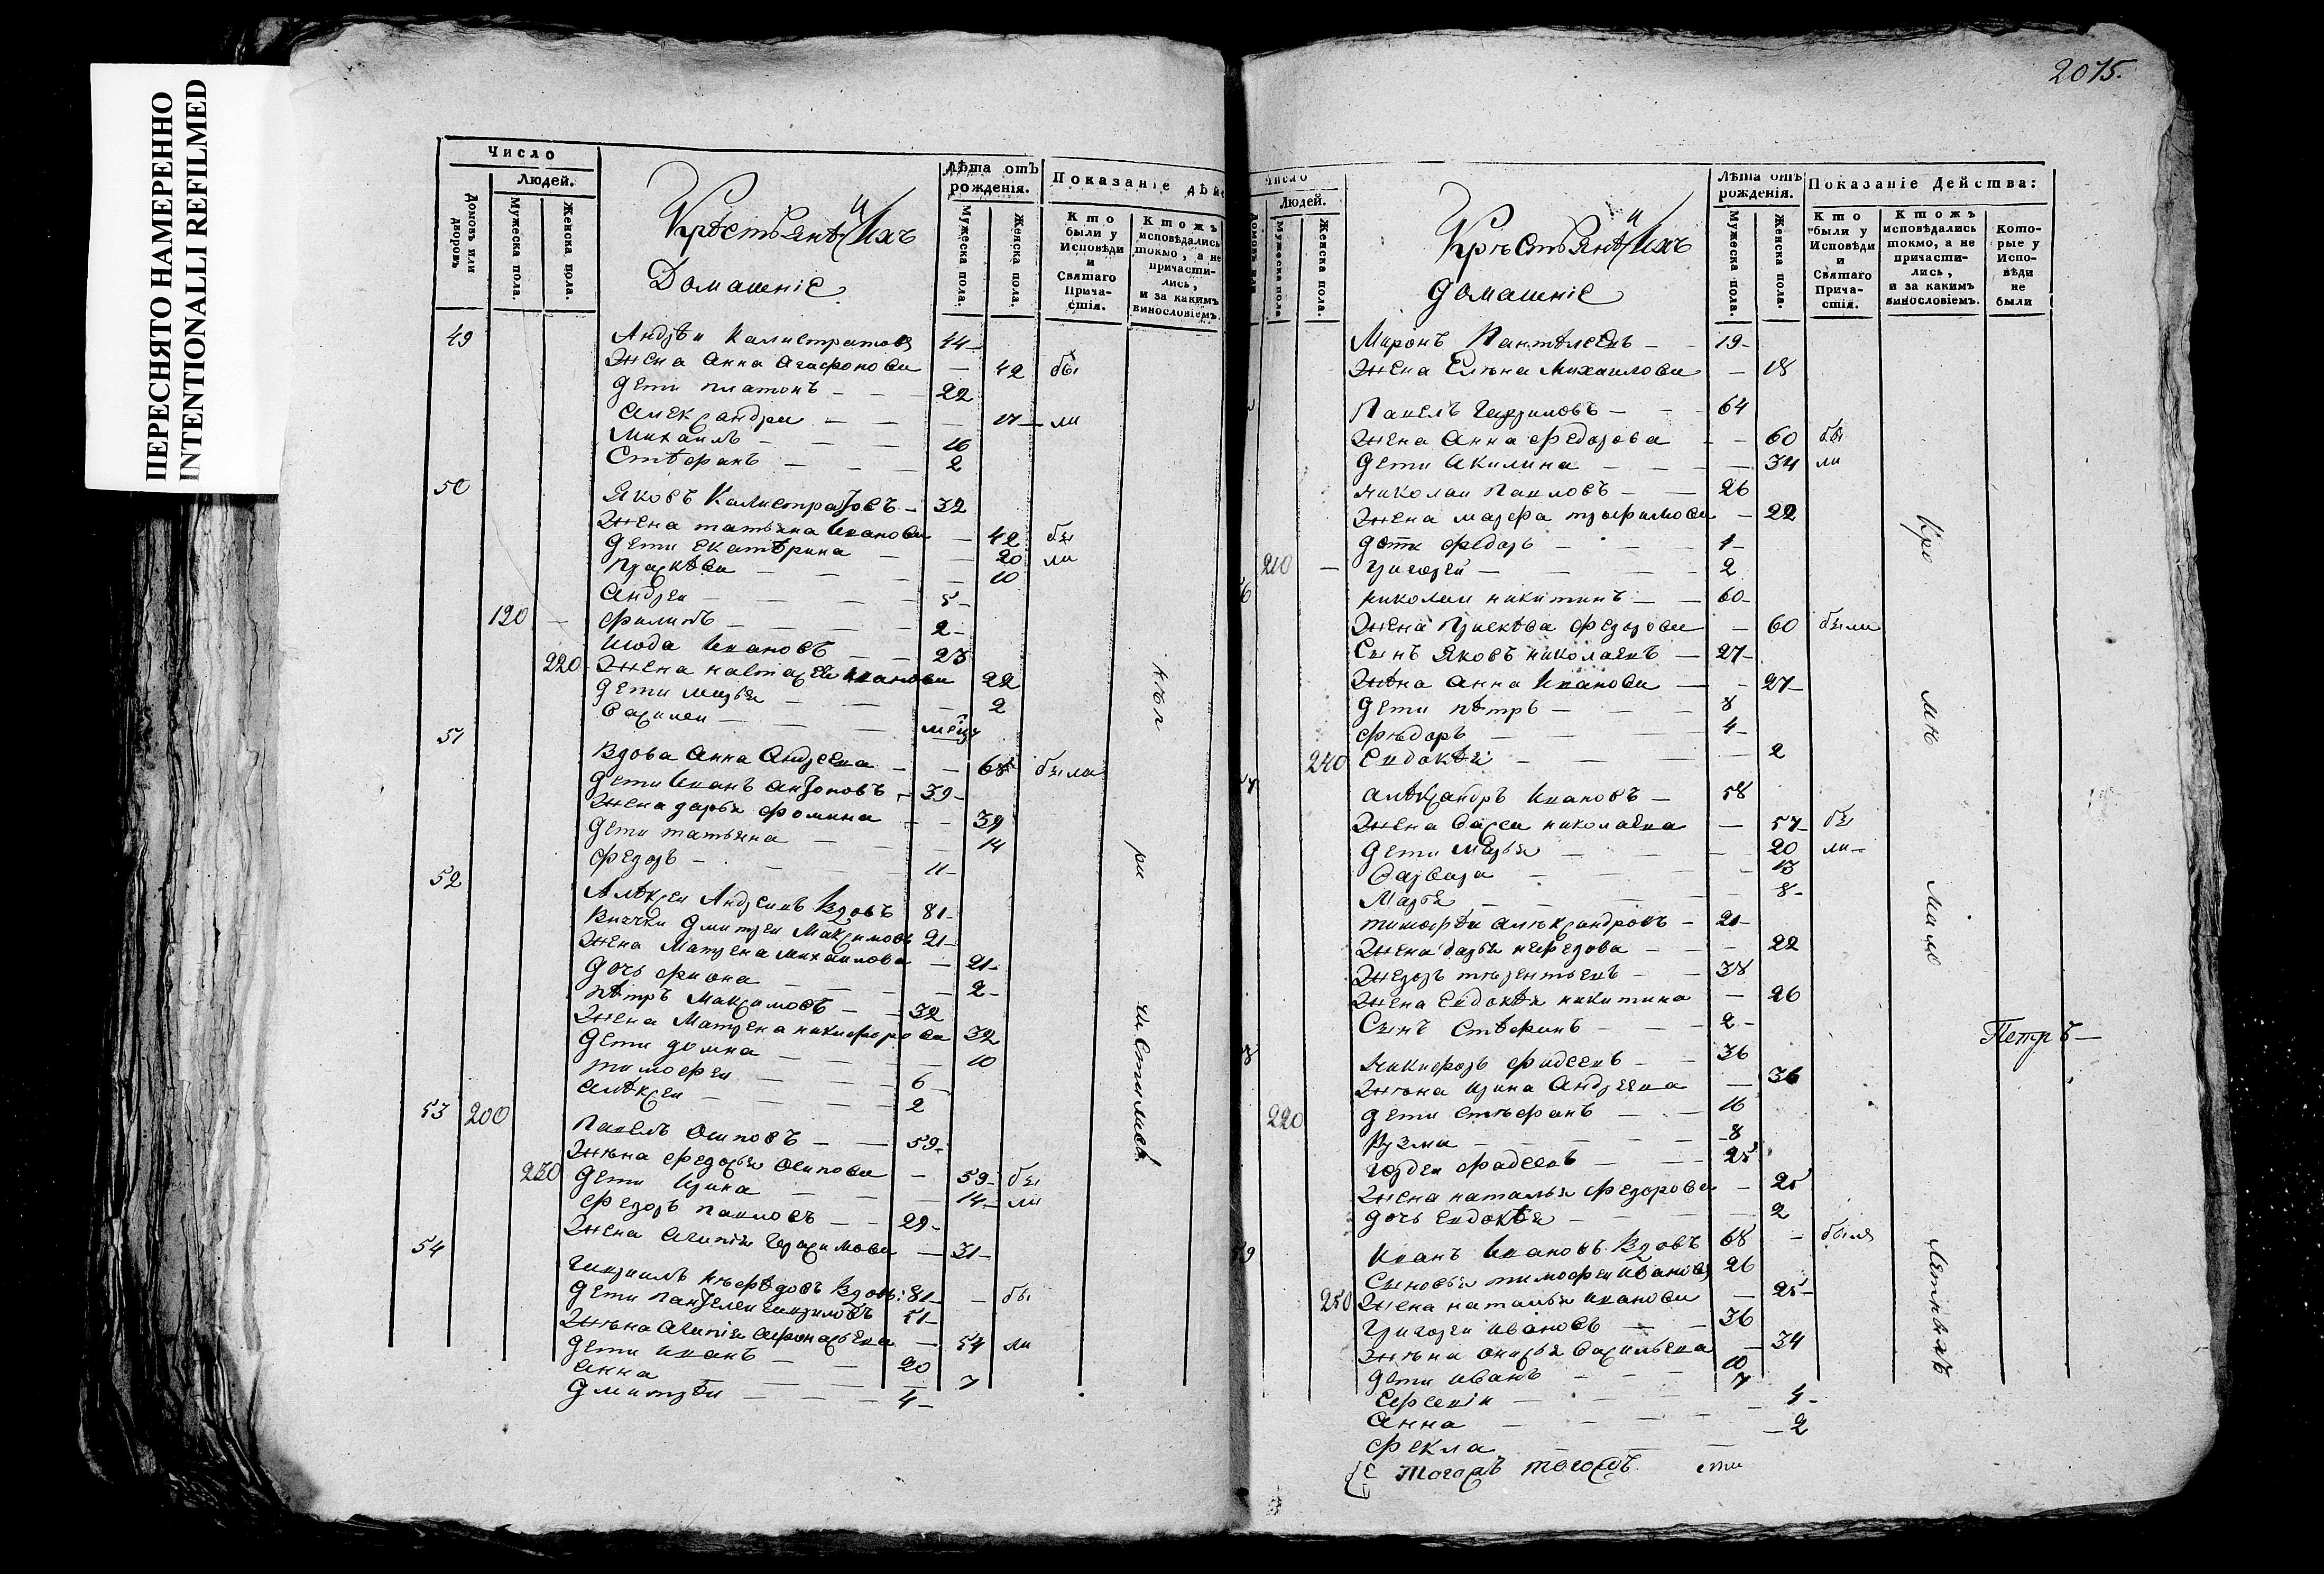 ПЕРЕСНЯТО НАМЕРЕННО
INTENTIONALLI REFILMED
Число
Людей.
Домовъ или дворовъ
Мужеска пола.
Женска пола.
Крѣстьянѣ и Ихъ
Домашніе
Лѣта отъ рожденія.
Мужеска пола.
Женска пола.
Показаніе дѣй
Кто были у Исповѣди и Святаго Причастія.
Ктожъ исповѣдались токмо, а не причастились, и за какимъ винословіемъ.
49 Андрѣи Калистратовъ 44
Жена Анна Агафонова — 42 бы
Дети Платонъ — — 22
Александра — — — 17 — ли
Михаилъ — — — 16
Стѣфанъ — — — 2
50 Яковъ Калистратовъ — 32
Жена татьяна Иванова — 42 бы
Дети Екатѣрина — — 20 ли
Праскѣва — — — 10
Андреи — — — 5
190 — Филипъ — — — 2
Июда Ивановъ — — 23
220 Жена Иванова 22
Дети Марья — — — 2
Василеи — — —
51 Вдова Анна Андреева — — 68 была
Дети Иванъ Антоновъ — 39
Жена дарья Фомина — — 39
Дети татьяна — — — 14
Федоръ — — — 11
52 Алѣксеи Андреевъ Вдовъ 81
Внучки Дмитреи Максимовъ 21
Жена Матрена Михаилова — 21
Дочь Фиона — — — 2
Пѣтръ Максимовъ — — 32
Жена Матрена никифорова 32
Дети домна — — — 10
тимофеи — — — 6
Алѣксеи — — — 2
53 200 Павелъ Осиповъ — — 59
Жѣна Федосья Осипова — 59 бы
230 Дети Ирина — — — 14 ли
Федоръ Павловъ — — 29
Жена Агипія Герасимова — 31
54 Гаврилъ нѣфѣдовъ Вдовъ: 81 — бы
Дети Пантелеи Гавриловъ 51
Жѣна Агипія — 54 ли
Дети Иванъ — — 20
Анна — — — — 7
Дмитрѣи — — — 4
не п
ри
частились
2015.
Число
Людей.
Домовъ или
Мужеска пола
Женска пола.
Крѣстьянѣ и Ихъ
домашніе
Лѣта отъ рожденія.
Мужеска пола.
Женска пола.
Показаніе Действа:
Кто были у Исповѣди и Святаго Причастія.
Ктожъ исповѣдались токмо, а не причастились, и за какимъ винословіемъ.
Которые у Исповѣди не были
Миронъ Пантѣлѣевъ — — 19
Жена Елѣна Михаилова — 18
Павелъ Гавриловъ — — 64
Жена Анна Федорова — — 60 бы
Дети Акилина — — — 34 ли
Николаи Павловъ — — 26
Жена марфа трофимова — 22
дѣти Федоръ — — — 1
210 — Григореи — — — 2
6 Николаи никитинъ — — 60
Жена Праскѣва Федорова — 60 были
Сынъ Яковъ николаевъ — 27
Жѣна Анна Иванова — — 27
Дети пѣтръ — — — 8
Фѣдоръ — — — 4
240 Евдокѣя — — — 2
Алѣксандръ Ивановъ — 58
Жена николаева — 57 бы
Дети Марья — — — 20 ли
Варвара — — — 13
Марья — — — 8
тимофѣи алѣксандровъ — 21
Жена дарья нефедова — — 22
тѣрентьевъ — — 38
Жена Евдокѣя никитина — 26
Сынъ Стѣфанъ — — — 2
8 Никифоръ Фадеевъ — — 36
Жѣна Ирина Андреева — 36
220 Дети Стѣфанъ — — 16
Кузма — — — — 8
Гордеи Фадеевъ — — 25
Жена наталья Федорова — 25
Дочь Евдокѣя — — — 2
59 Иванъ Ивановъ Вдовъ 68 — были
Сыновья тимофеи Ивановъ 26
250 Жена наталья Иванова — 25
Григореи Ивановъ — — 36
Жѣна Васильева — 34
Дети Иванъ — — — 10
7
Анна — — — — 4
Фекла — — — — 2
Кро
мѣ
мало
Летныхъ
Петръ —